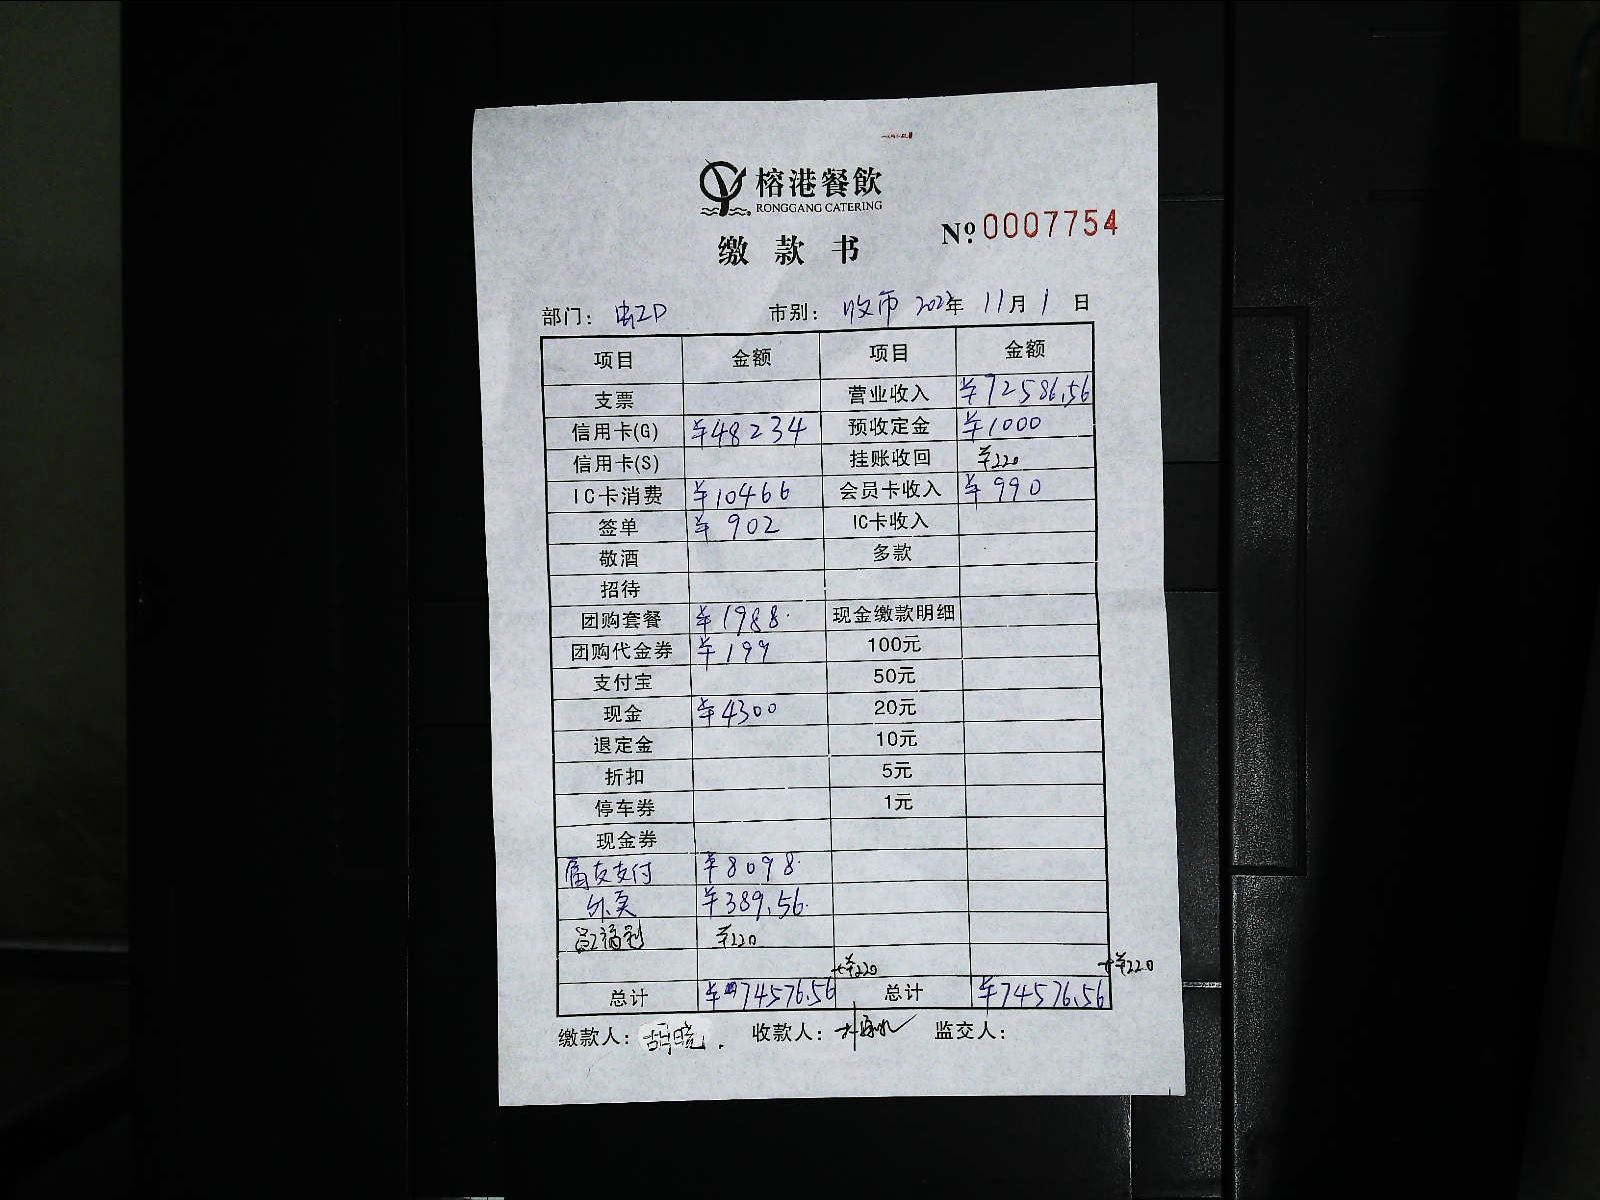 榕港餐飲
RONGGANG CATERING
缴款书
No.0007754
部门： 虹口 市别： 收市 2022年 11月 1日
项目 金额 项目 金额
支票 营业收入 ¥72586.56
信用卡(G) ¥48234 预收定金 ¥1000
信用卡(S) 挂账收回 ¥220
IC卡消费 ¥10466 会员卡收入 ¥990
签单 ¥902 IC卡收入
敬酒 多款
招待
团购套餐 ¥1988. 现金缴款明细
团购代金券 ¥199 100元
支付宝 50元
现金 ¥4300 20元
退定金 10元
折扣 5元
停车券 1元
现金券
支付 ¥8098.
外卖 ¥389.56.
员工福利 ¥220
+¥220 +¥220
总计 ¥74576.56 总计 ¥74576.56
缴款人： 胡晓. 收款人： 监交人：